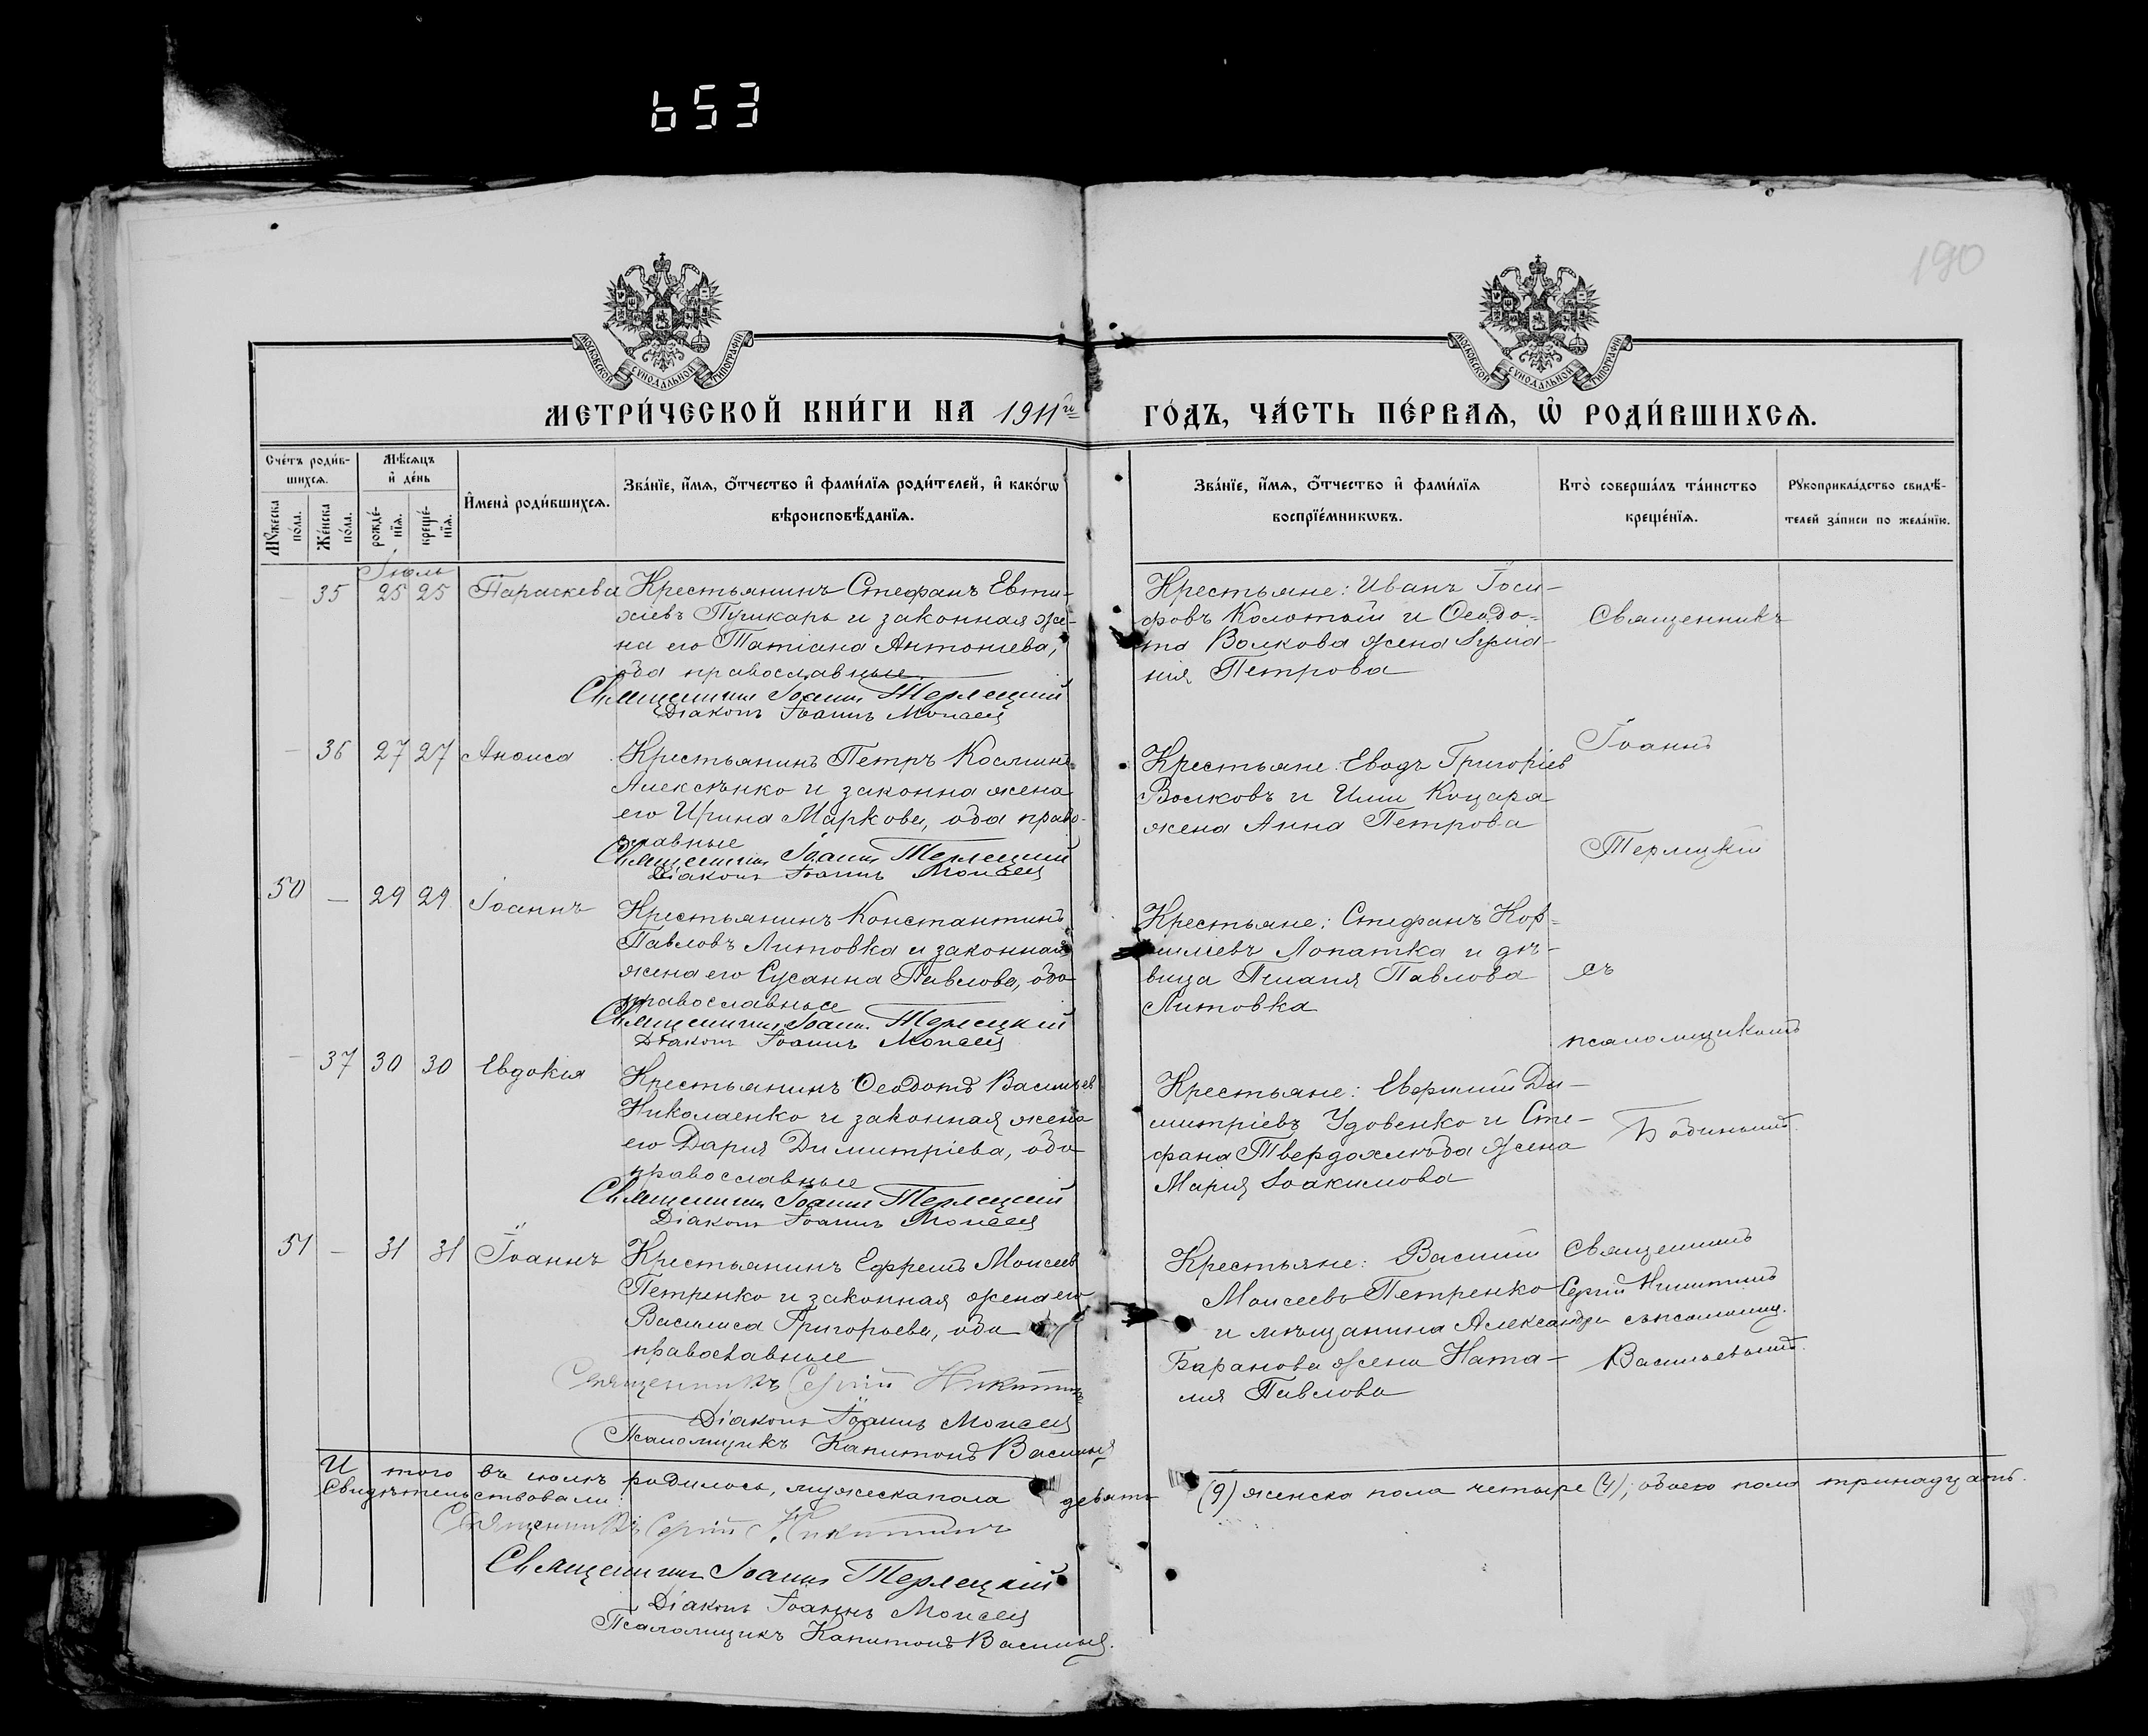 653
190
МОСКОВСКОЙ СѴНОДАЛЬНОЙ ТИПОГРАФІИ
МОСКОВСКОЙ СѴНОДАЛЬНОЙ ТИПОГРАФІИ
МЕТРИ́ЧЕСКОЙ КНИ́ГИ НА 1911й ГО́ДЪ, ЧА́СТЬ ПЕ́РВАѦ, Ѡ҆ РОДИ́ВШИХСѦ.
Сче́тъ роди́в-
шихсѧ.
Мꙋ́жеска
по́ла.
Же́нска
по́ла.
Мѣ́сѧцъ
и҆ де́нь
рожде́-
нїѧ.
креще́-
нїѧ.
И҆мена̀ роди́вшихсѧ.
Зва́нїе, и҆́мѧ, ѻ҆́тчество и҆ фами́лїѧ роди́телей, и҆ како́гѡ
вѣроисповѣ́данїѧ.
Зва́нїе, и҆́мѧ, ѻ҆́тчество и҆ фами́лїѧ
воспрїе́мникѡвъ.
Кто̀ соверша́лъ та́инство
креще́нїѧ.
Рꙋкоприкла́дство свидѣ́-
телей за́писи по жела́нїю.
Іюль
— 35 25 25 Параскева
Крестьянинъ Стефанъ Евти-
хіевъ Пушкарь и законная же-
на его Татіана Антоніева,
оба православные.
Священникъ Іоаннъ Терлецкий
Діаконъ Іоаннъ Моисей
Крестьяне: Иванъ Іоси-
фовъ Колотый и Ѳеодо-
та Волкова жена
нія Петрова
Священникъ
— 36 27 27 Анѳиса
Крестьянинъ Петръ Косминъ
Алексѣнко и законна жена
его Ирина Маркова, оба право-
славные
Священникъ Іоаннъ Терлецкий
Діаконъ Іоаннъ Моисей
Крестьяне: Еводъ Григоріев
Волковъ и Коцаря
жена Анна Петрова
Іоаннъ
Терлецкій
50 — 29 29 Іоаннъ
Крестьянинъ Константинъ
Павловъ Литовка и законная
жена его Сусанна Павлова, оба
православные
Священникъ Іоаннъ Терлецкий
Діаконъ Іоаннъ Моисей
Крестьяне: Стефанъ Кор-
ниліевъ Лопатка и дѣ-
вица Павлова
Литовка
съ
псаломщикомъ
— 37 30 30 Евдокія
Крестьянинъ Ѳеодотъ Васильев
Николаенко и законная жена
его Дарія Димитріева, оба
православные
Священникъ Іоаннъ Терлецкий
Діаконъ Іоаннъ Моисей
Крестьяне: Евфимій Ди-
митріевъ Удовенко и Сте-
фана Твердохлѣба жена
Марія Іоакимова
51 — 31 31 Іоаннъ
Крестьянинъ Ефремъ Моисеев
Петренко и законная жена его
Василиса Григорьева, оба
православные
Священникъ Сергій Никитинъ
Діаконъ Іоаннъ Моисей
Псаломщикъ Капитонъ
Крестьяне: Василій
Моисеевъ Петренко
и мѣщанина Александра
Баранова жена Ната-
лія Павлова
Священникъ
Сергій Никитинъ
съ псаломщ.
Васильевымъ.
И того въ іюлѣ родилось, мужеска пола девять (9) женска пола четыре (4); обоего пола тринадцать.
Свидѣтельствовали:
Священникъ Сергій Никитинъ
Священникъ Іоаннъ Терлецкій
Діаконъ Іоаннъ Моисей
Псаломщикъ Капитонъ